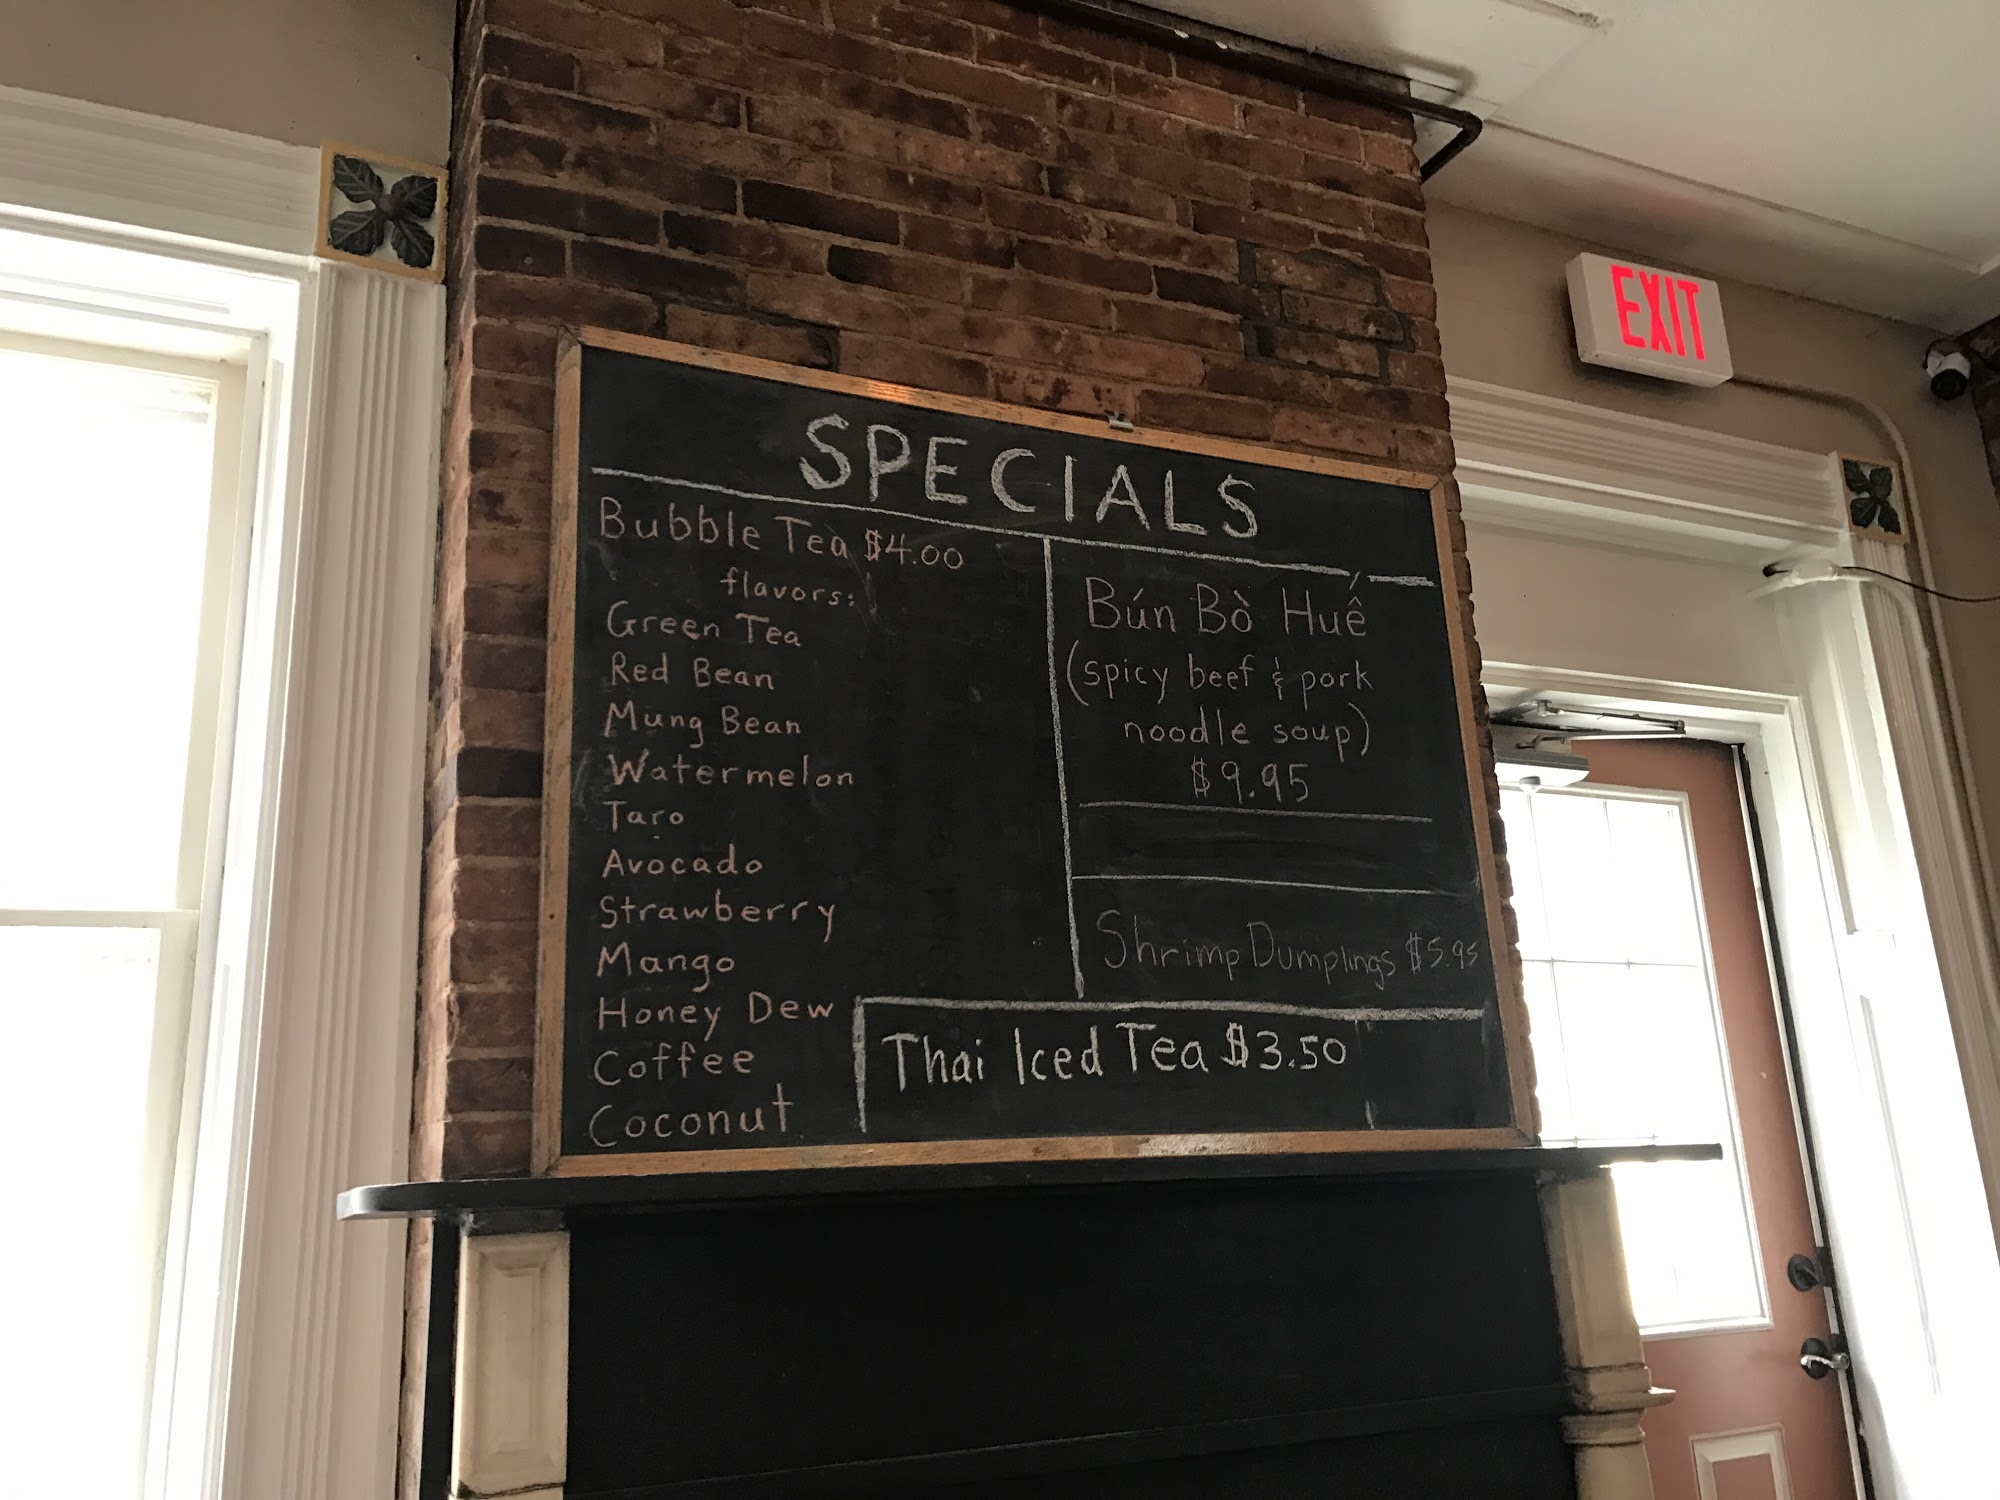 SPECIALS
Bubble Tea $4.00
flavors:
Green Tea
Red Bean
Mung Bean
Watermelon
Taro
Avocado
Strawberry
Mango
Honey Dew
Coffee
Coconut
Bún Bò Huế
(spicy beef & pork
noodle soup)
$9.95
Shrimp Dumplings $5.95
Thai Iced Tea $3.50
EXIT